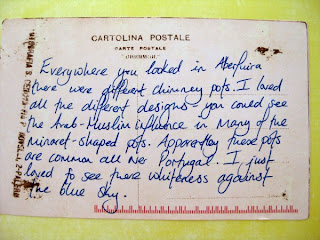 CARTOLINA POSTALE
CARTE POSTALE
Everywhere you looked in Abefuira
there were different chimney pots. I loved
all the different designs - you could see
the Arab-Muslim influence in many of the
minaret-shaped pots. Apparantley these pots
are common all over Portugal. I just
loved to see there whiteness against
the blue sky.